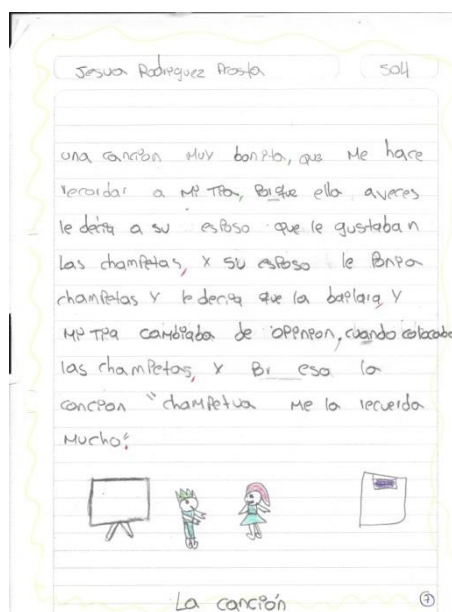 Jesua Rodriguez Prosta 504
una cancion muy bonita, que me hace
recordar a mi tia, Porque ella aveces
le decia a su esposo que le gustaban
las champetas, y su esposo le Ponia
champetas y le decia que la bailara y
mi tia cambiaba de oppnion, cuando colocaba
las champetas, y Por eso la
cancion "champetua me la recuerda
mucho".
La canción 7